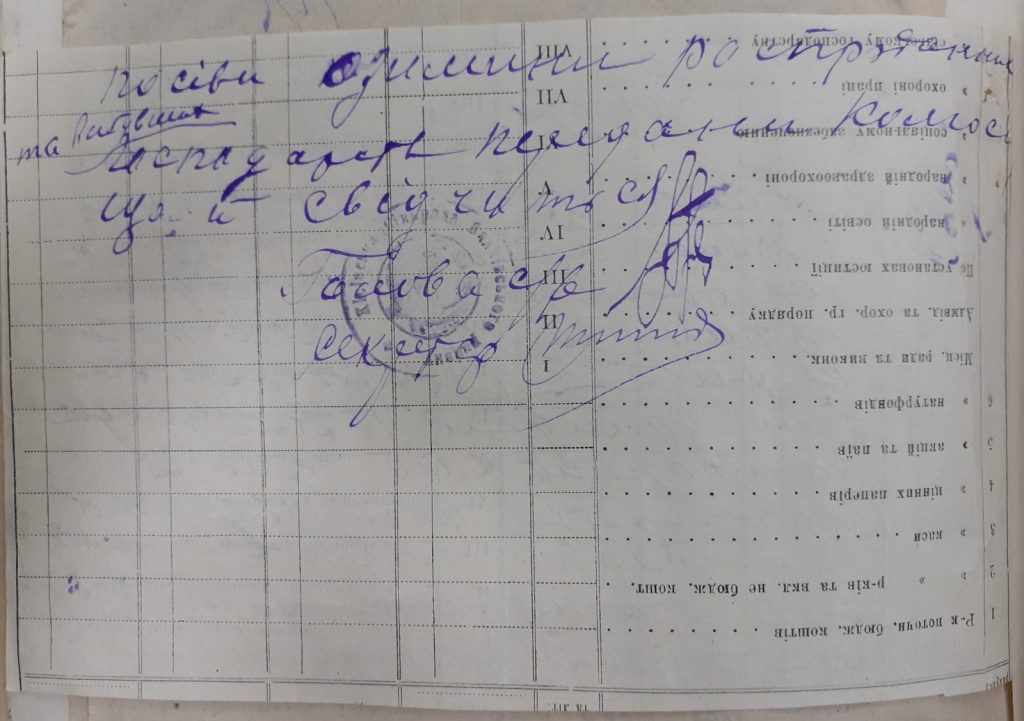 посіви озимини
та вибувших
господарств передани колгос
що й свідчиться
Голова с/р
Секретар
та літ.
1 Р-к поточн. бюдж. коштів
2 » » р-ків та вкл. не бюдж. кошт.
3 » каси
4 » цінних паперів
5 » акцій та паїв
6 » натурфондів
Місц. ради та викони. I
Адмін. та охор. гр. порядку II
По установах юстиції III
» народній освіті IV
» народній здравоохороні V
» соціяльному забезпеченню VI
» охороні праці VII
сільському господарству VIII